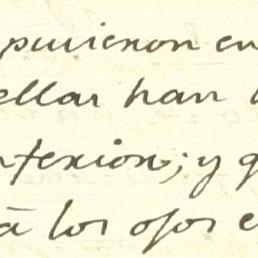 pusieron en
ellas han
nferion; y q
á los ojos e